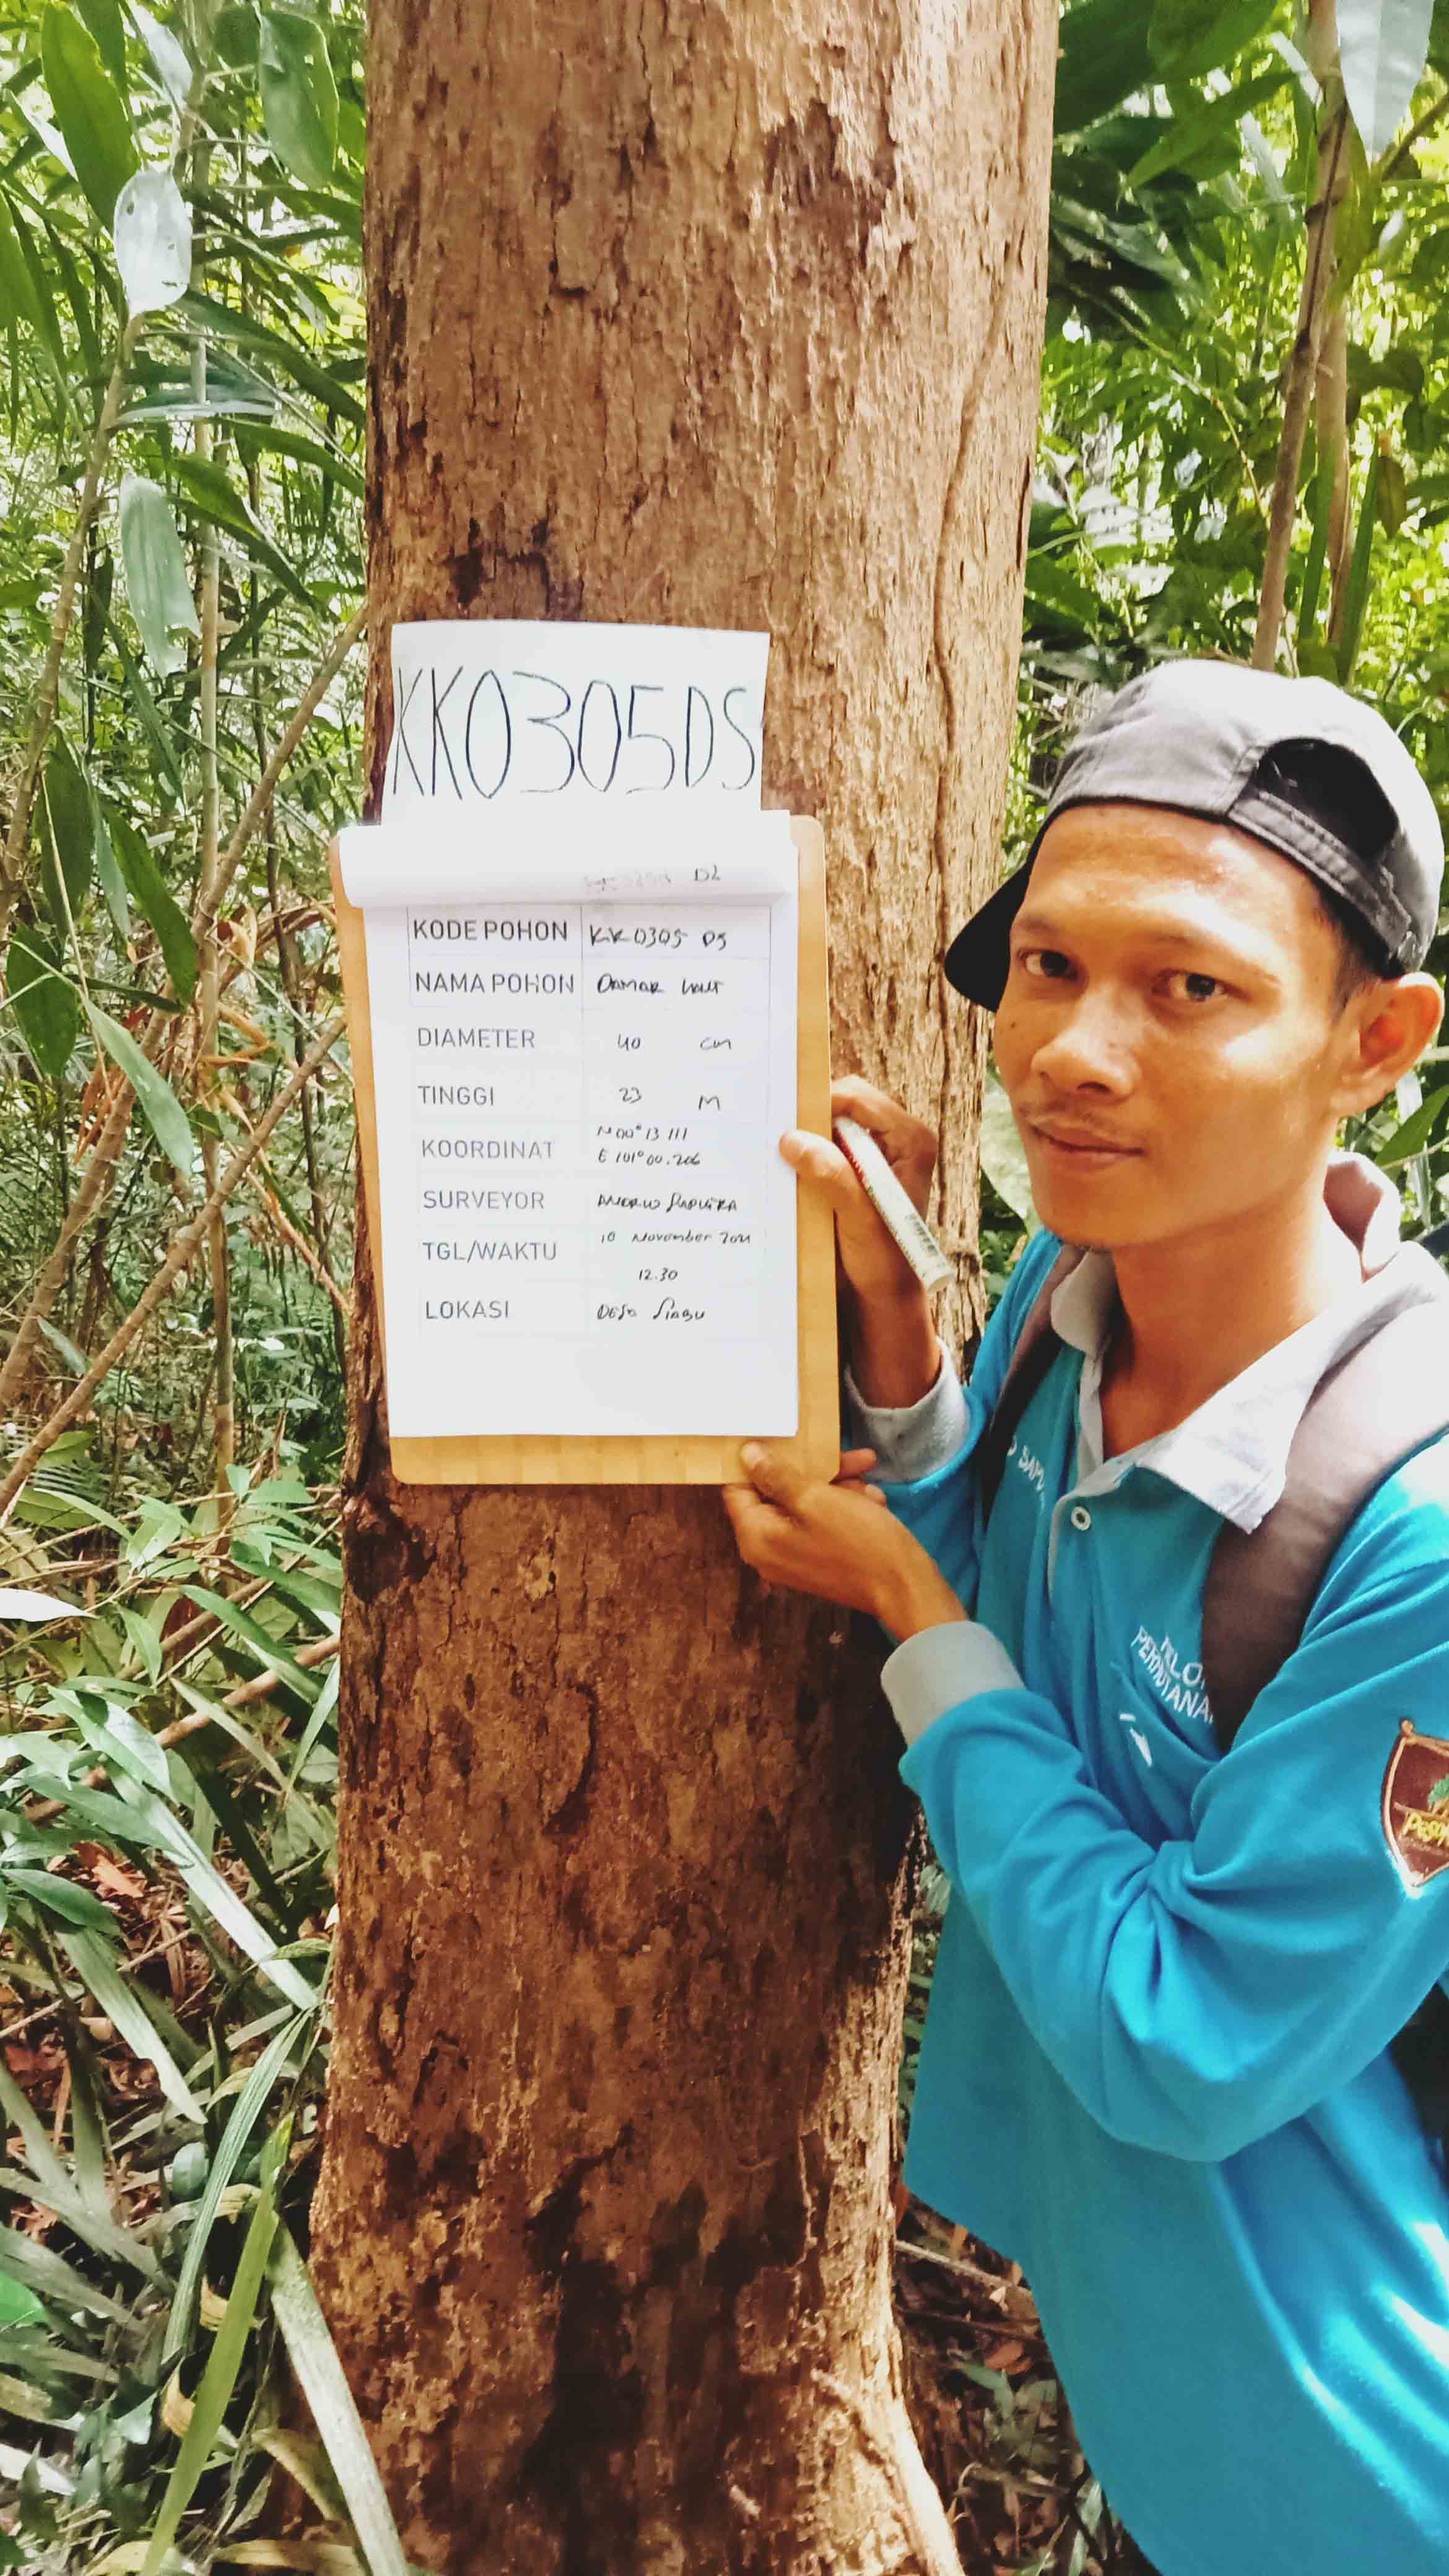 KK0305DS
DL
KODE POHON KK0305 DS
NAMA POHON Damar laut
DIAMETER 40 cm
TINGGI 23 M
KOORDINAT N 00° 13 111
E 101° 00.206
SURVEYOR SAPUTRA
TGL/WAKTU 10 November 2021
12.30
LOKASI Desa Siabu
PERHUTANA